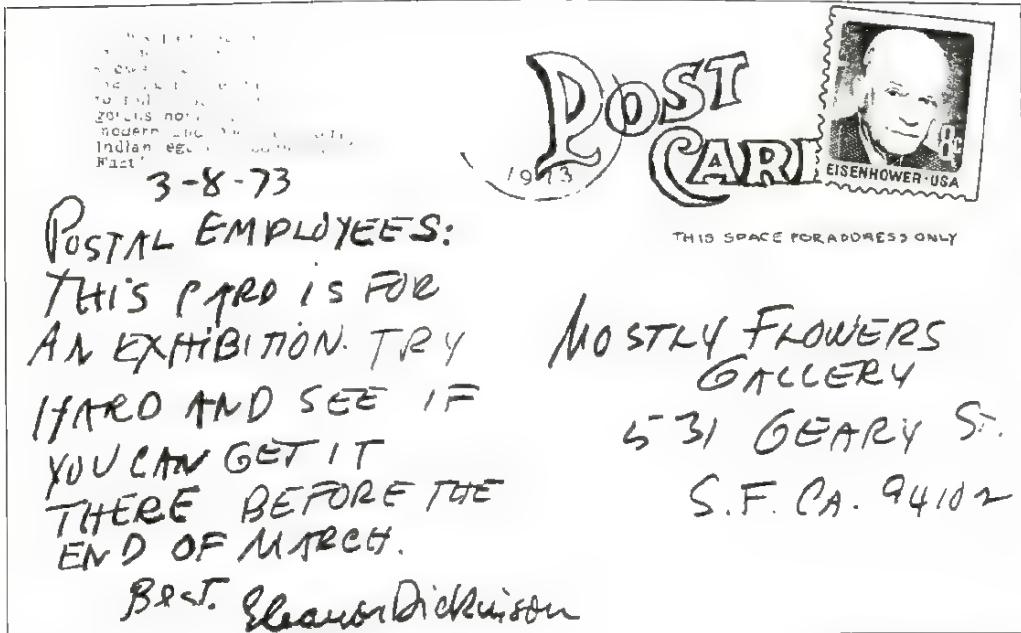 to
modern
Indian
3-8-73
POSTAL EMPLOYEES:
THIS CARD IS FOR
AN EXHIBITION. TRY
HARD AND SEE IF
YOU CAN GET IT
THERE BEFORE THE
END OF MARCH.
Best. Eleanor Dickinson
POST
CARD
1973
8c
EISENHOWER·USA
THIS SPACE FOR ADDRESS ONLY
MOSTLY FLOWERS
GALLERY
531 GEARY ST.
S.F. CA. 94102